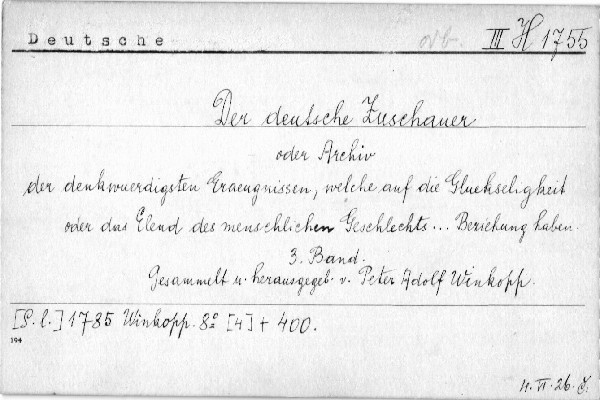 Deutsche ovb. III H 1755
Der deutsche Zuschauer
oder Archiv
der denkwuerdigsten Eraeugnissen, welche auf die Glueckseligkeit
oder das Elend des menschlichen Geschlechts... Beziehung haben.
3. Band.
Gesammelt u. herausgegeb. v. Peter Adolf Winkopp.
[S. l.] 1785 Winkopp. 8º [4] + 400.
194
4. VI. 26. J.